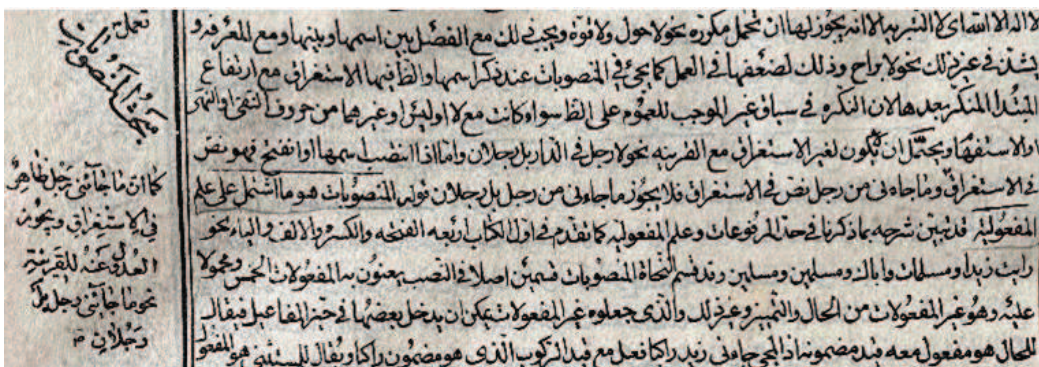 لا اله الا الله اى لا التبريه الا انه يجوز لها ان تحمل مكررة نحو لا حول ولا قوة ويجب ذلك مع الفصل بين اسمها وبينها ومع المعرفه و
يشذ فى غير ذلك نحو لا براح وذلك لضعفها فى العمل كما يجئ فى المنصوبات عند ذكر اسمها والظ فيها الاستغراق مع ارتفاع
المبتدا المنكر بعدها لان النكره فى سياق غير الموجب للعموم على الظ سواء كانت مع لا او ليس او غيرهما من حروف النفى او النهى
او الاستفهام ويحتمل ان يكون لغير الاستغراق مع القرينه نحو لا رجل فى الدار بل رجلان واما اذا انتصب اسمها او انفتح فهو نص
فى الاستغراق وما جاءنى من رجل نص فى الاستغراق فلا يجوز ما جاءنى من رجل بل رجلان قوله المنصوبات هو ما اشتمل على علم
المفعولية قد تبين شرحه بما ذكرنا فى حد المرفوعات وعلم المفعوليه كما تقدم فى اول الكتاب اربعه الفتحه والكسر والالف والياء نحو
رايت زيدا ومسلمات واباك ومسلمين ومسلمين وقد قسم النحاة المنصوبات قسمين اصلا فى النصب يعنون به المفعولات الخمس ومحمولا
عليه وهو غير المفعولات من الحال والتمييز وغير ذلك والذى جعلوه غير المفعولات يمكن ان يدخل بعضها فى حيز المفاعيل فيقال
للحال هو مفعول معه قيد مضمونه اذ المجئ جاءنى زيد راكبا فعل مع قيد الركوب الذى هو مضمون راكبا ويقال للمستثنى هو المفعول
تعمل
مبحث المنصوبات
كما ان ما جاءنى رجل ظاهر
فى الاستغراق ويجوز
العدول عنه للقرينة
نحو ما جاءنى رجل بل
رجلان